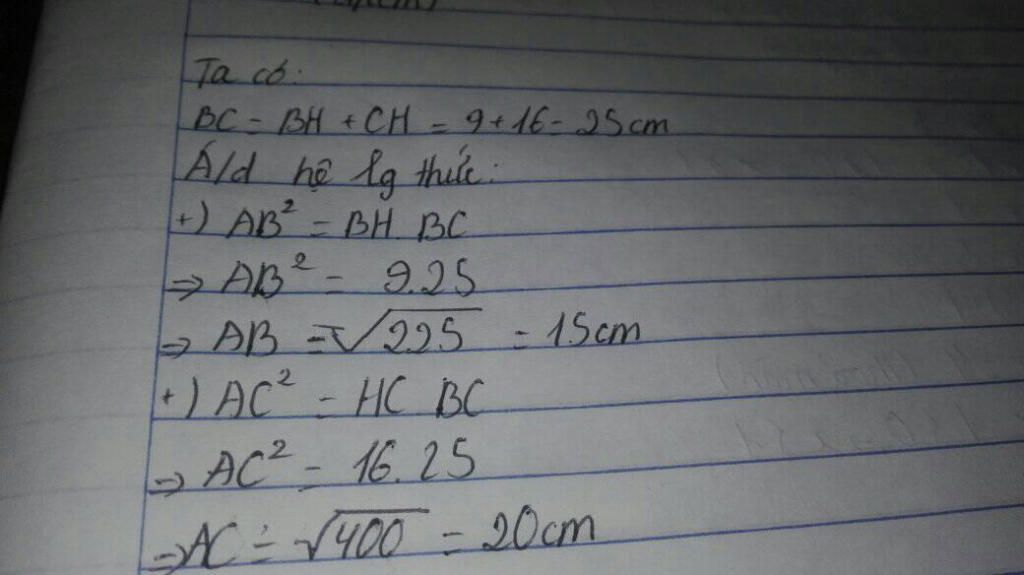 Ta có:
BC = BH + CH = 9 + 16 = 25cm
Á/d hệ lg thức:
+) AB² = BH BC
=> AB² = 9.25
=> AB = √225 = 15cm
+) AC² = HC BC
=> AC² = 16.25
=> AC = √400 = 20cm